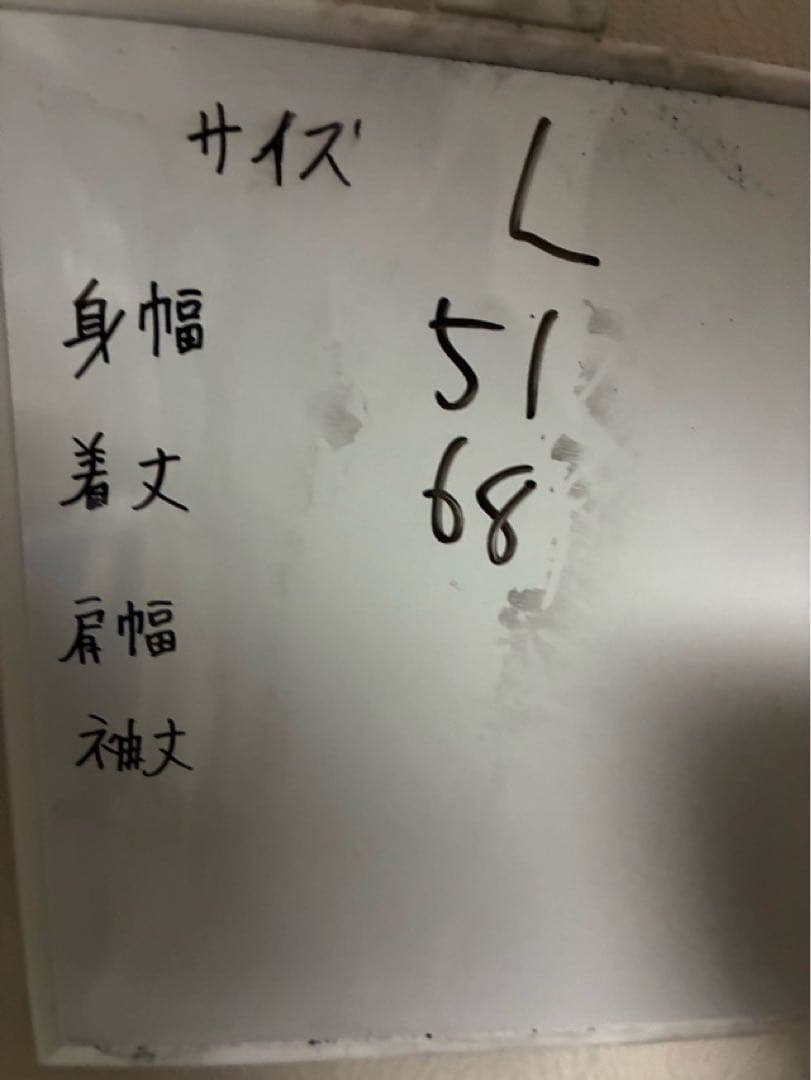 サイズ L
身幅 51
着丈 68
肩幅
袖丈